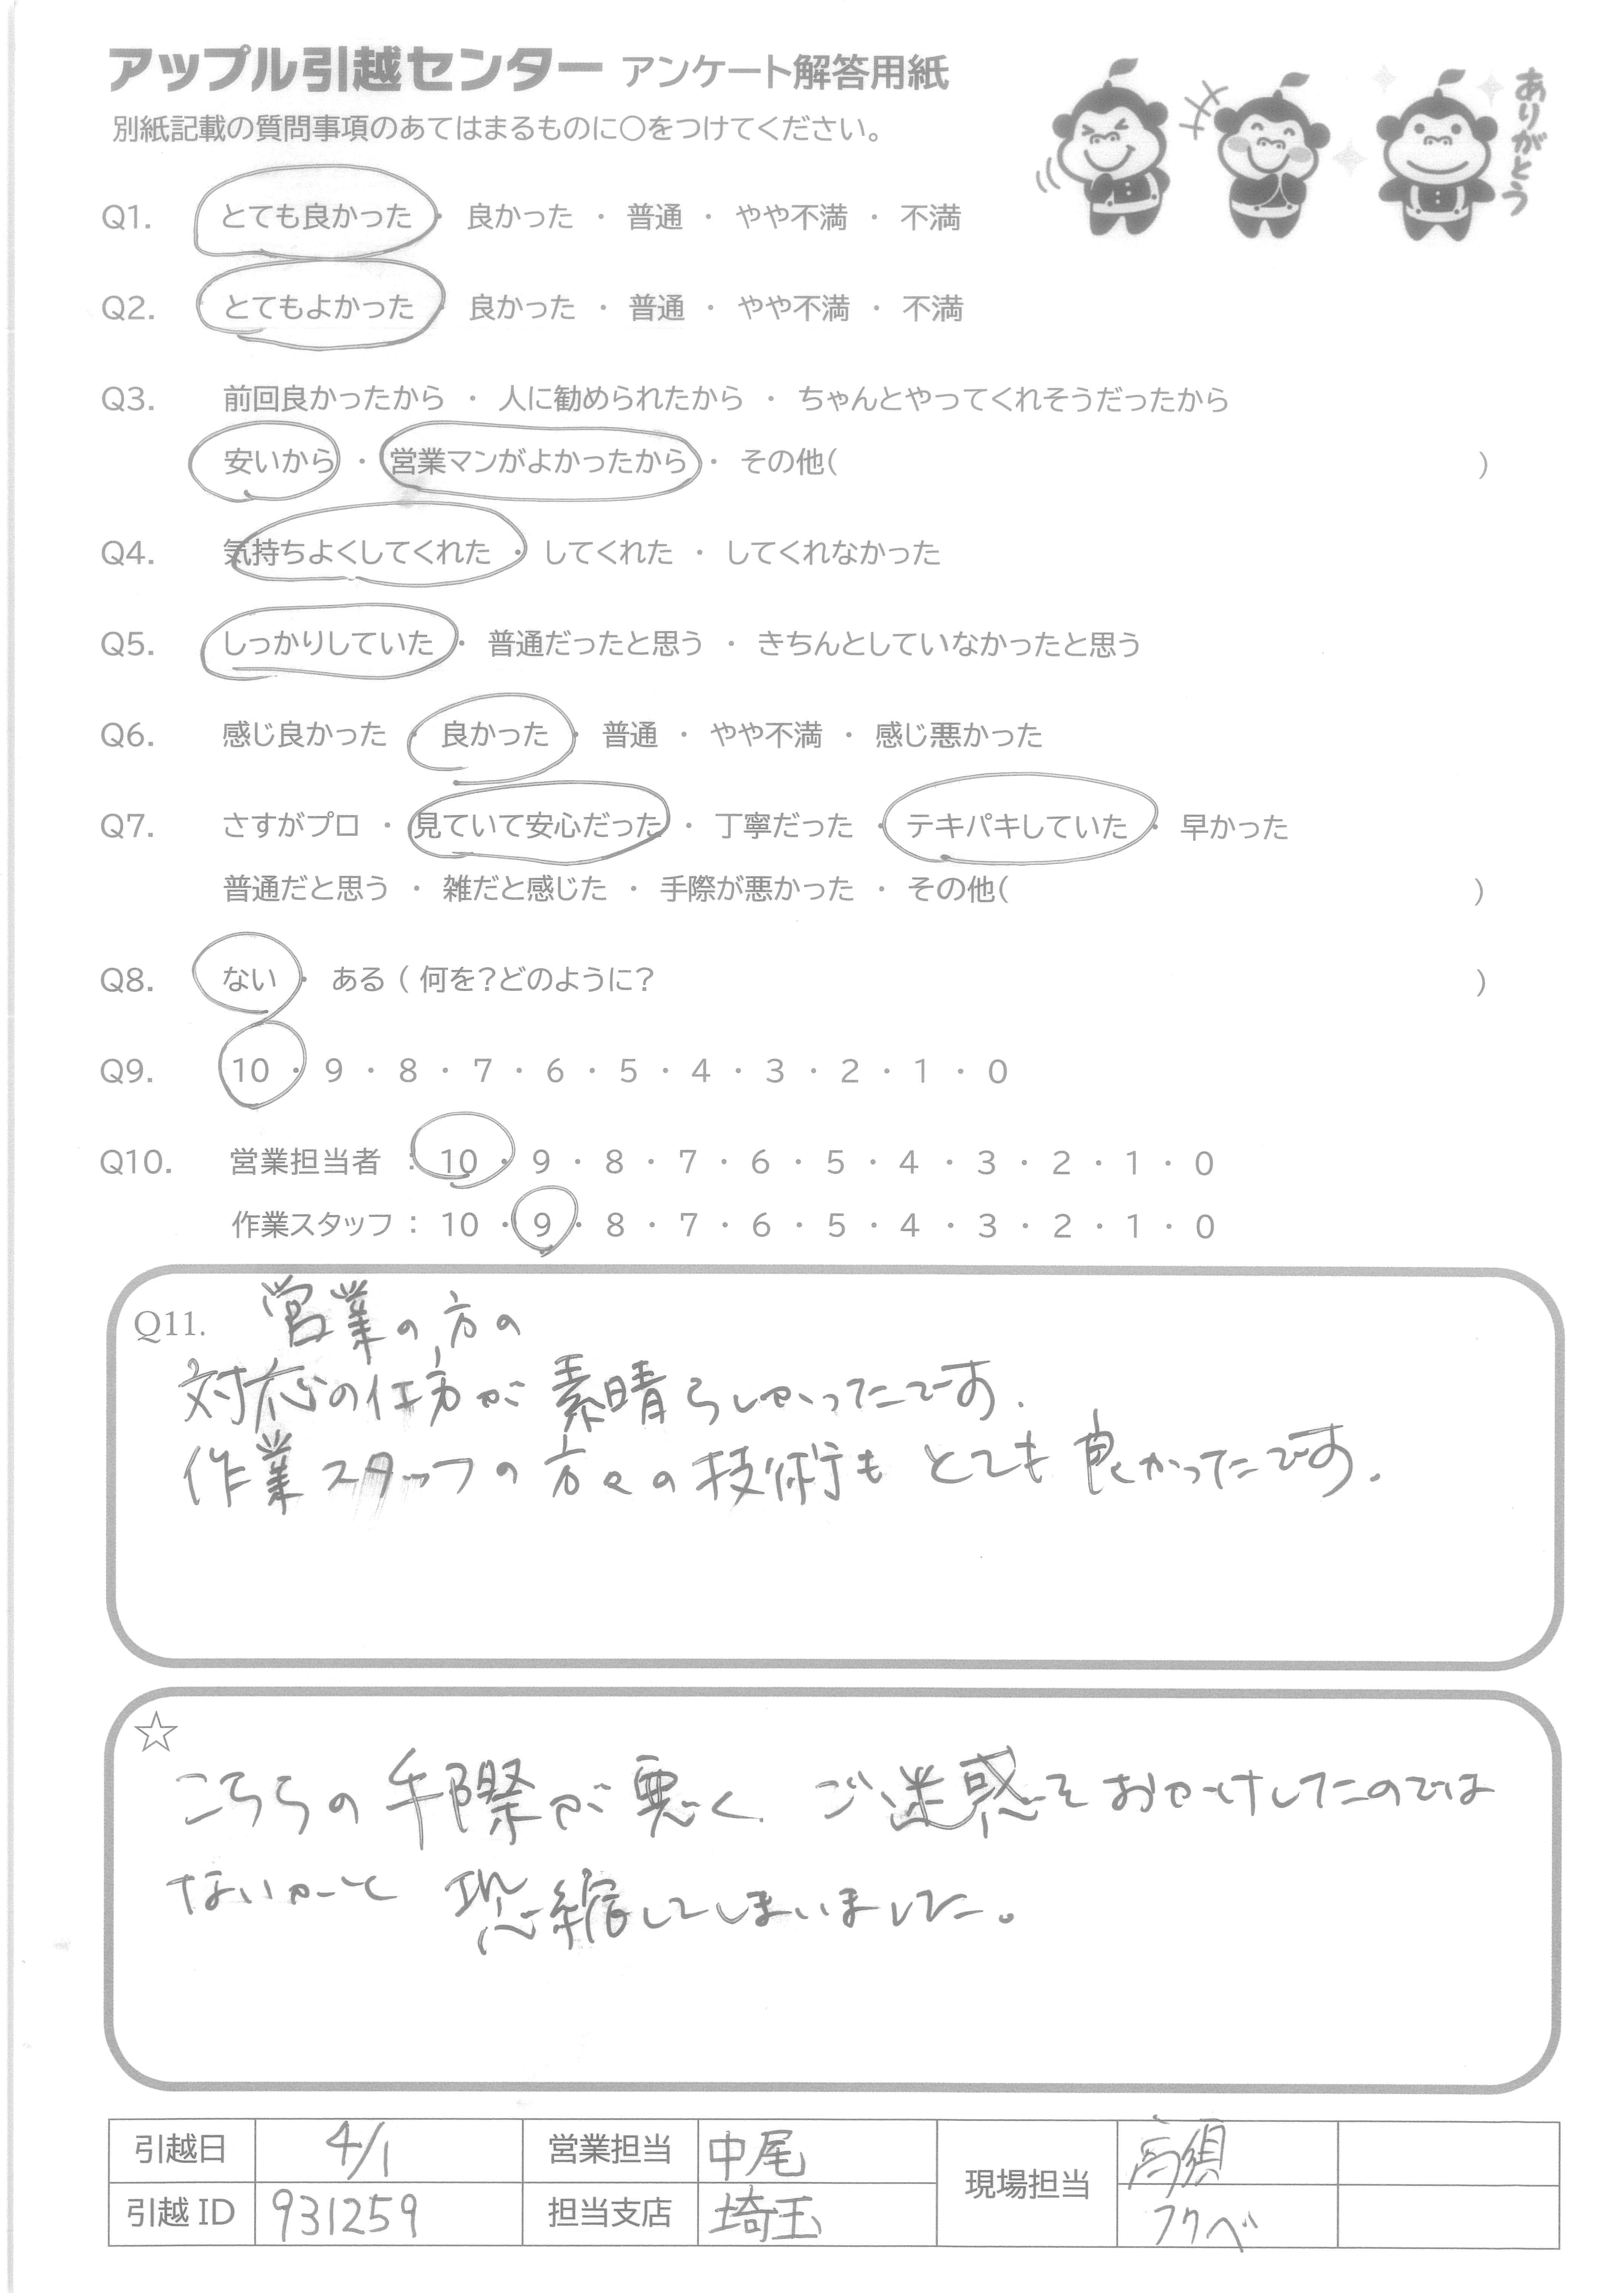 アップル引越センター アンケート解答用紙
別紙記載の質問事項のあてはまるものに○をつけてください。
ありがとう
Q1. とても良かった ・ 良かった ・ 普通 ・ やや不満 ・ 不満
Q2. とてもよかった ・ 良かった ・ 普通 ・ やや不満 ・ 不満
Q3. 前回良かったから ・ 人に勧められたから ・ ちゃんとやってくれそうだったから
安いから ・ 営業マンがよかったから ・ その他( )
Q4. 気持ちよくしてくれた ・ してくれた ・ してくれなかった
Q5. しっかりしていた ・ 普通だったと思う ・ きちんとしていなかったと思う
Q6. 感じ良かった ・ 良かった ・ 普通 ・ やや不満 ・ 感じ悪かった
Q7. さすがプロ ・ 見ていて安心だった ・ 丁寧だった ・ テキパキしていた ・ 早かった
普通だと思う ・ 雑だと感じた ・ 手際が悪かった ・ その他( )
Q8. ない ・ ある ( 何を?どのように? )
Q9. 10 ・ 9 ・ 8 ・ 7 ・ 6 ・ 5 ・ 4 ・ 3 ・ 2 ・ 1 ・ 0
Q10. 営業担当者 : 10 ・ 9 ・ 8 ・ 7 ・ 6 ・ 5 ・ 4 ・ 3 ・ 2 ・ 1 ・ 0
作業スタッフ : 10 ・ 9 ・ 8 ・ 7 ・ 6 ・ 5 ・ 4 ・ 3 ・ 2 ・ 1 ・ 0
Q11. 営業の方の
対応の仕方が素晴らしかったです.
作業スタッフの方々の技術もとても良かったです.
☆
こちらの手際が悪く、ご迷惑をおかけしたのでは
ないかと 恐縮してしまいました。
引越日 4/1 営業担当 中尾 現場担当 高須
引越ID 931259 担当支店 埼玉 フクベ